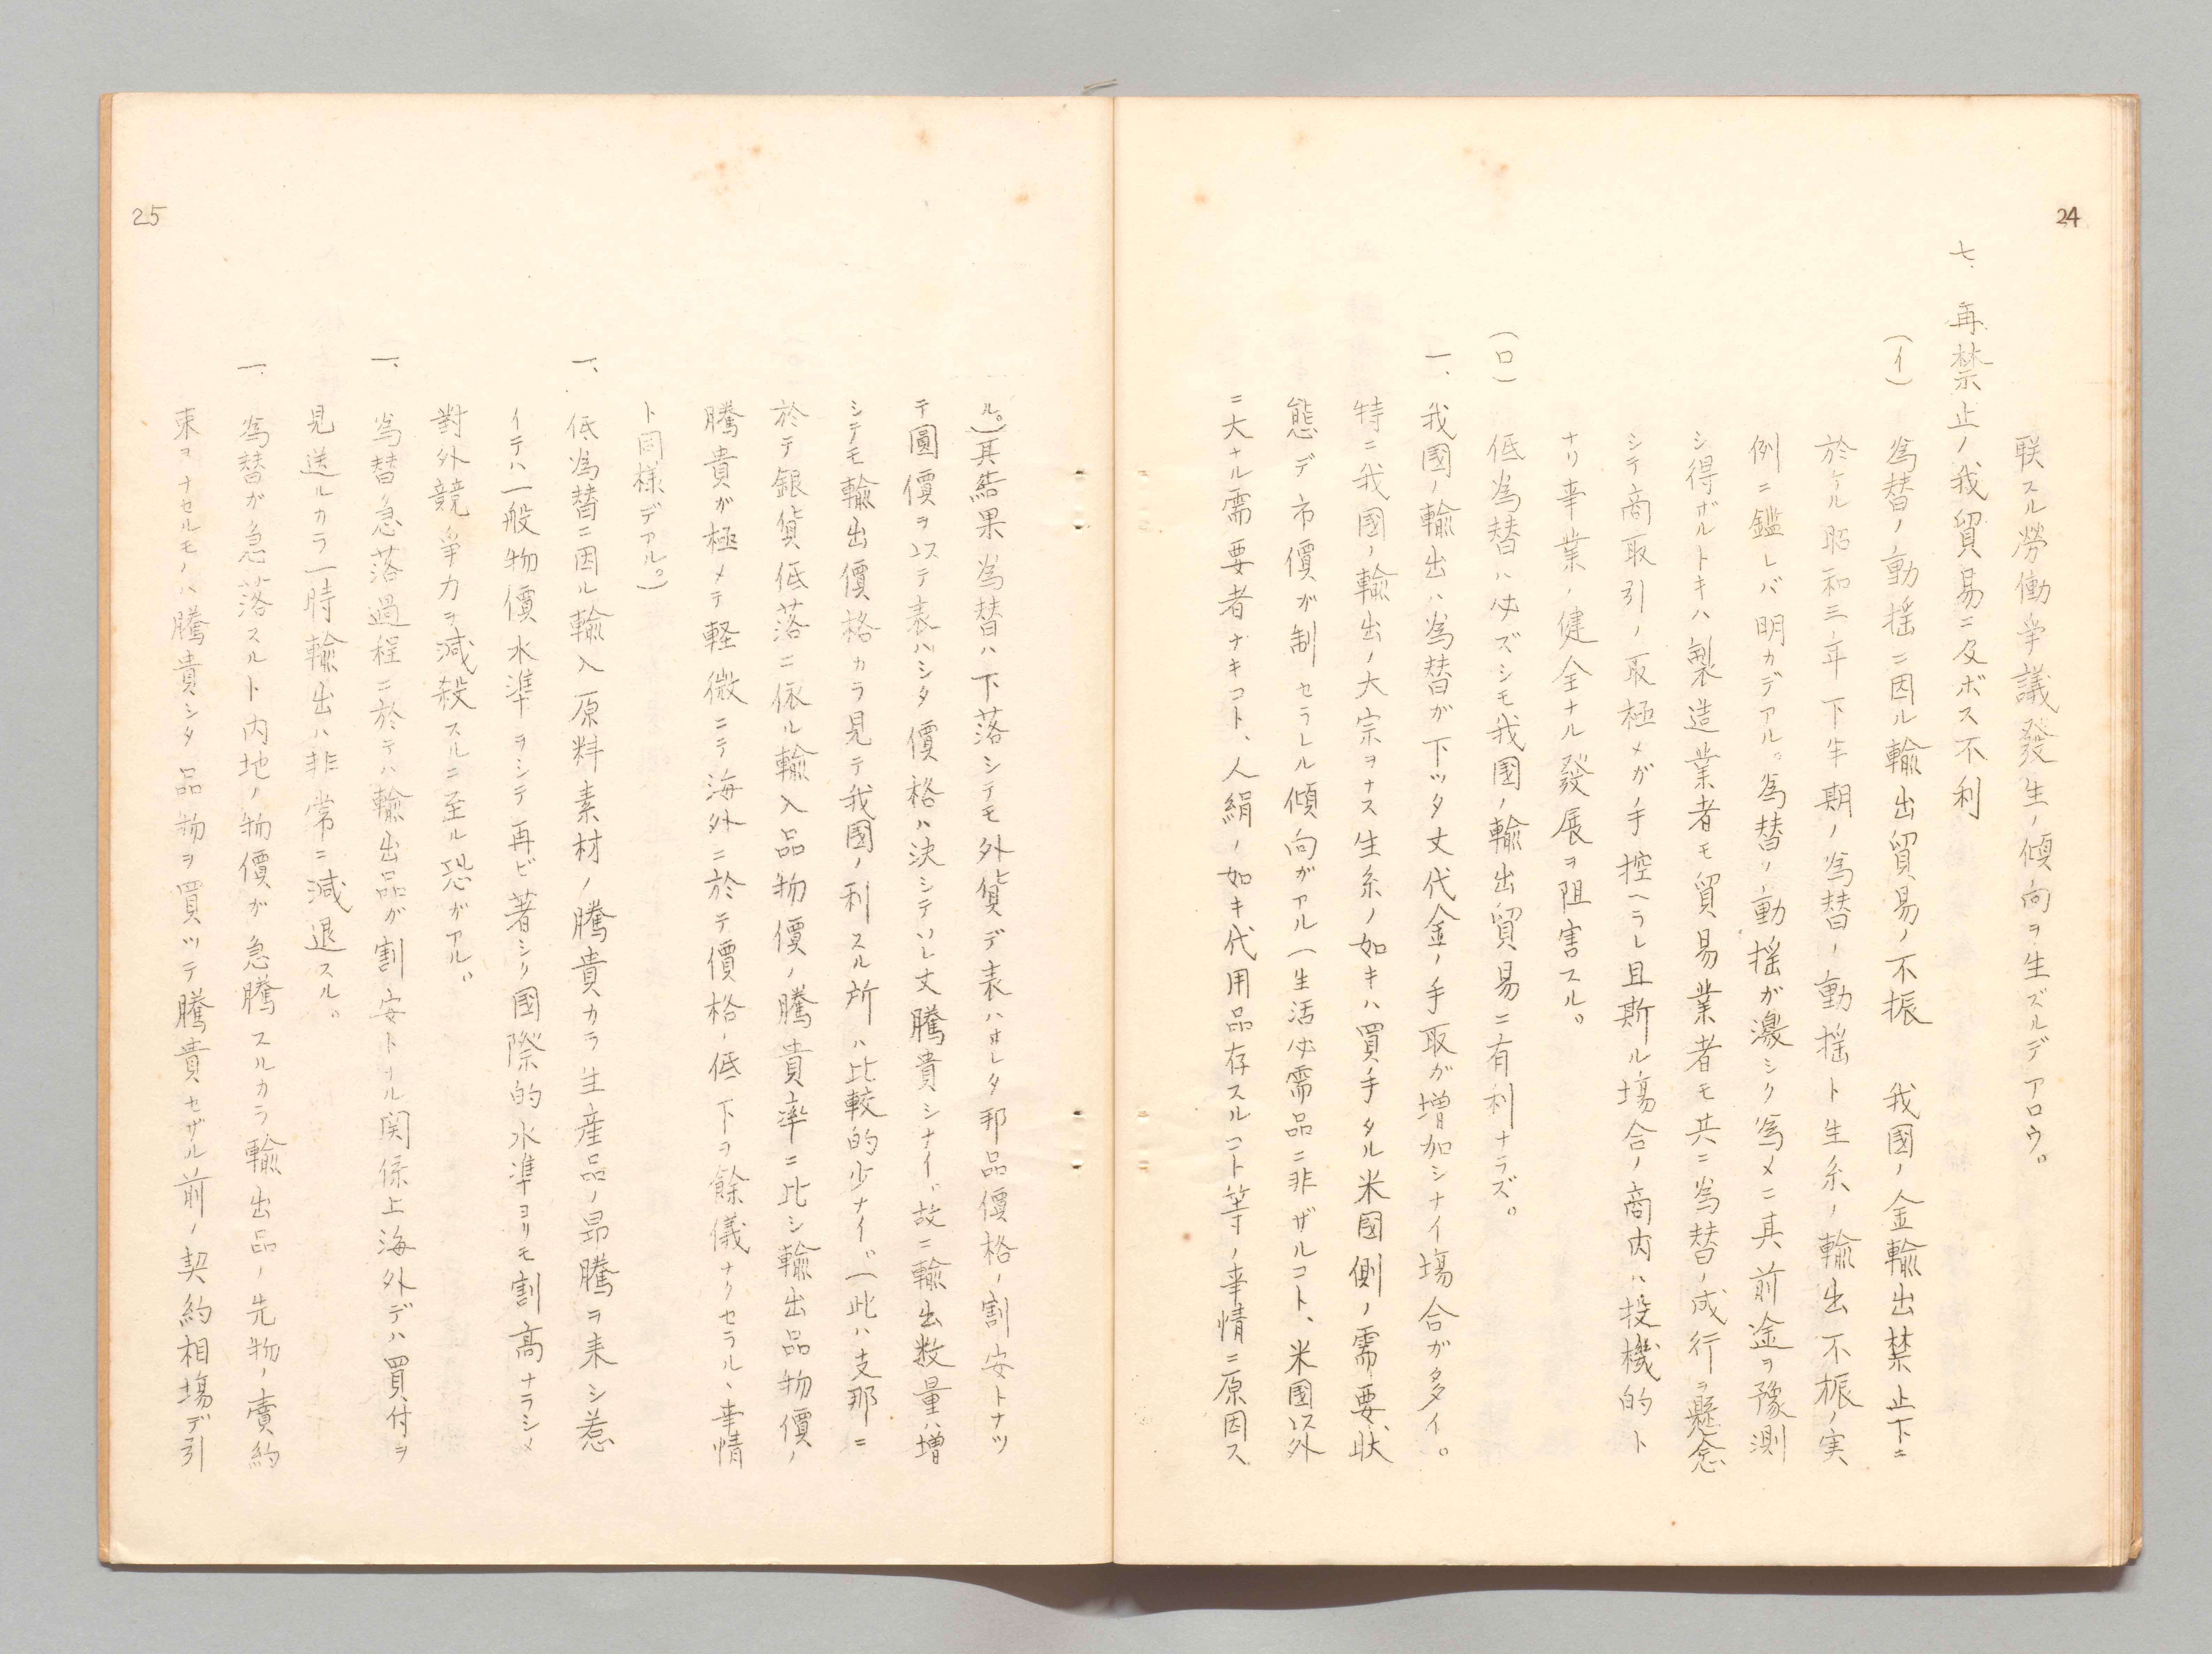 24
聯スル勞働爭議發生ノ傾向ヲ生ズルデアロウ。
七、再禁止ノ我貿易ニ及ボス不利
(イ) 為替ノ動揺ニ因ル輸出貿易ノ不振 我國ノ金輸出禁止下ニ
於ケル昭和三年下半期ノ為替ノ動揺ト生糸ノ輸出不振ノ実
例ニ鑑レバ明カデアル。為替ノ動揺ガ激シク為メニ其前途ヲ豫測
シ得ザルトキハ製造業者モ貿易業者モ共ニ為替ノ成行ヲ懸念
シテ商取引ノ取極メガ手控ヘラレ且斯ル場合ノ商内ハ投機的ト
ナリ事業ノ健全ナル發展ヲ阻害スル。
(ロ) 低為替ハ必ズシモ我國ノ輸出貿易ニ有利ナラズ。
一、我國ノ輸出ハ為替ガ下ッタ丈代金ノ手取ガ増加シナイ場合ガ多イ。
特ニ我國ノ輸出ノ大宗ヲナス生糸ノ如キハ買手タル米國側ノ需要状
態デ市價ガ制セラレル傾向ガアル(生活必需品ニ非ザルコト、米国以外
ニ大ナル需要者ナキコト、人絹ノ如キ代用品存スルコト等ノ事情ニ原因ス
25
ル。)其結果為替ハ下落シテモ外貨デ表ハサレタ邦品價格ノ割安トナツ
テ圓價ヲ以テ表ハシタ價格ハ決シテソレ丈騰貴シナイ。故ニ輸出数量ハ増
シテモ輸出價格カラ見テ我國ノ利スル所ハ比較的少ナイ。(此ハ支那ニ
於テ銀貨低落ニ依ル輸入品物價ノ騰貴率ニ比シ輸出品物價ノ
騰貴ガ極メテ軽微ニテ海外ニ於テ價格ノ低下ヲ餘儀ナクセラルヽ事情
ト同様デアル。)
一、低為替ニ因ル輸入原料素材ノ騰貴カラ生産品ノ昂騰ヲ来シ惹
イテハ一般物價水準ヲシテ再ビ著シク國際的水準ヨリモ割高ナラシメ
對外競爭力ヲ減殺スルニ至ル恐ガアル。
一、為替急落過程ニ於テハ輸出品ガ割安トナル関係上海外デハ買付ヲ
見送ルカラ一時輸出ハ非常ニ減退スル。
一、為替ガ急落スルト内地ノ物價ガ急騰スルカラ輸出品ノ先物ノ賣約
束ヲナセルモノハ騰貴シタ品物ヲ買ッテ騰貴セザル前ノ契約相場デ引